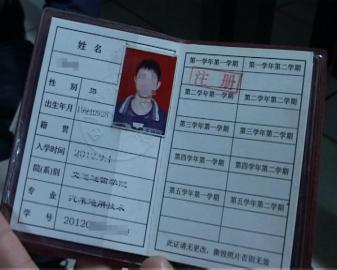 姓 名
性 别 男
出生年月 19940928
籍 贯
入学时间 2012.9.1
院(系)别 交通运管学院
专 业 汽车运用技术
学 号 20120
第一学年第一学期 第一学年第二学期
注册
第二学年第一学期 第二学年第二学期
第三学年第一学期 第三学年第二学期
第四学年第一学期 第四学年第二学期
第五学年第一学期 第五学年第二学期
此证请无更改，撕毁照片否则无效